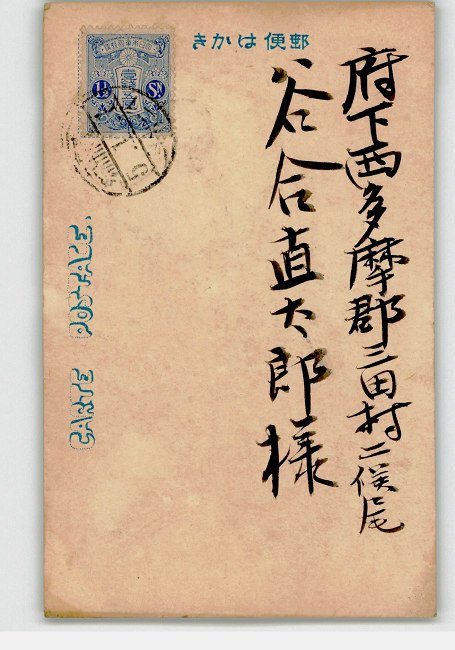 郵便はかき
府下西多摩郡三田村二俣尾
谷合直太郎様
1½ Sn
CARTE POSTALE.